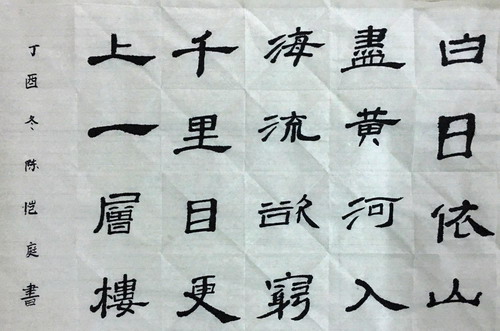 白日依山
盡黄河入
海流欲窮
千里目更
上一層樓
丁酉冬陈恺庭書